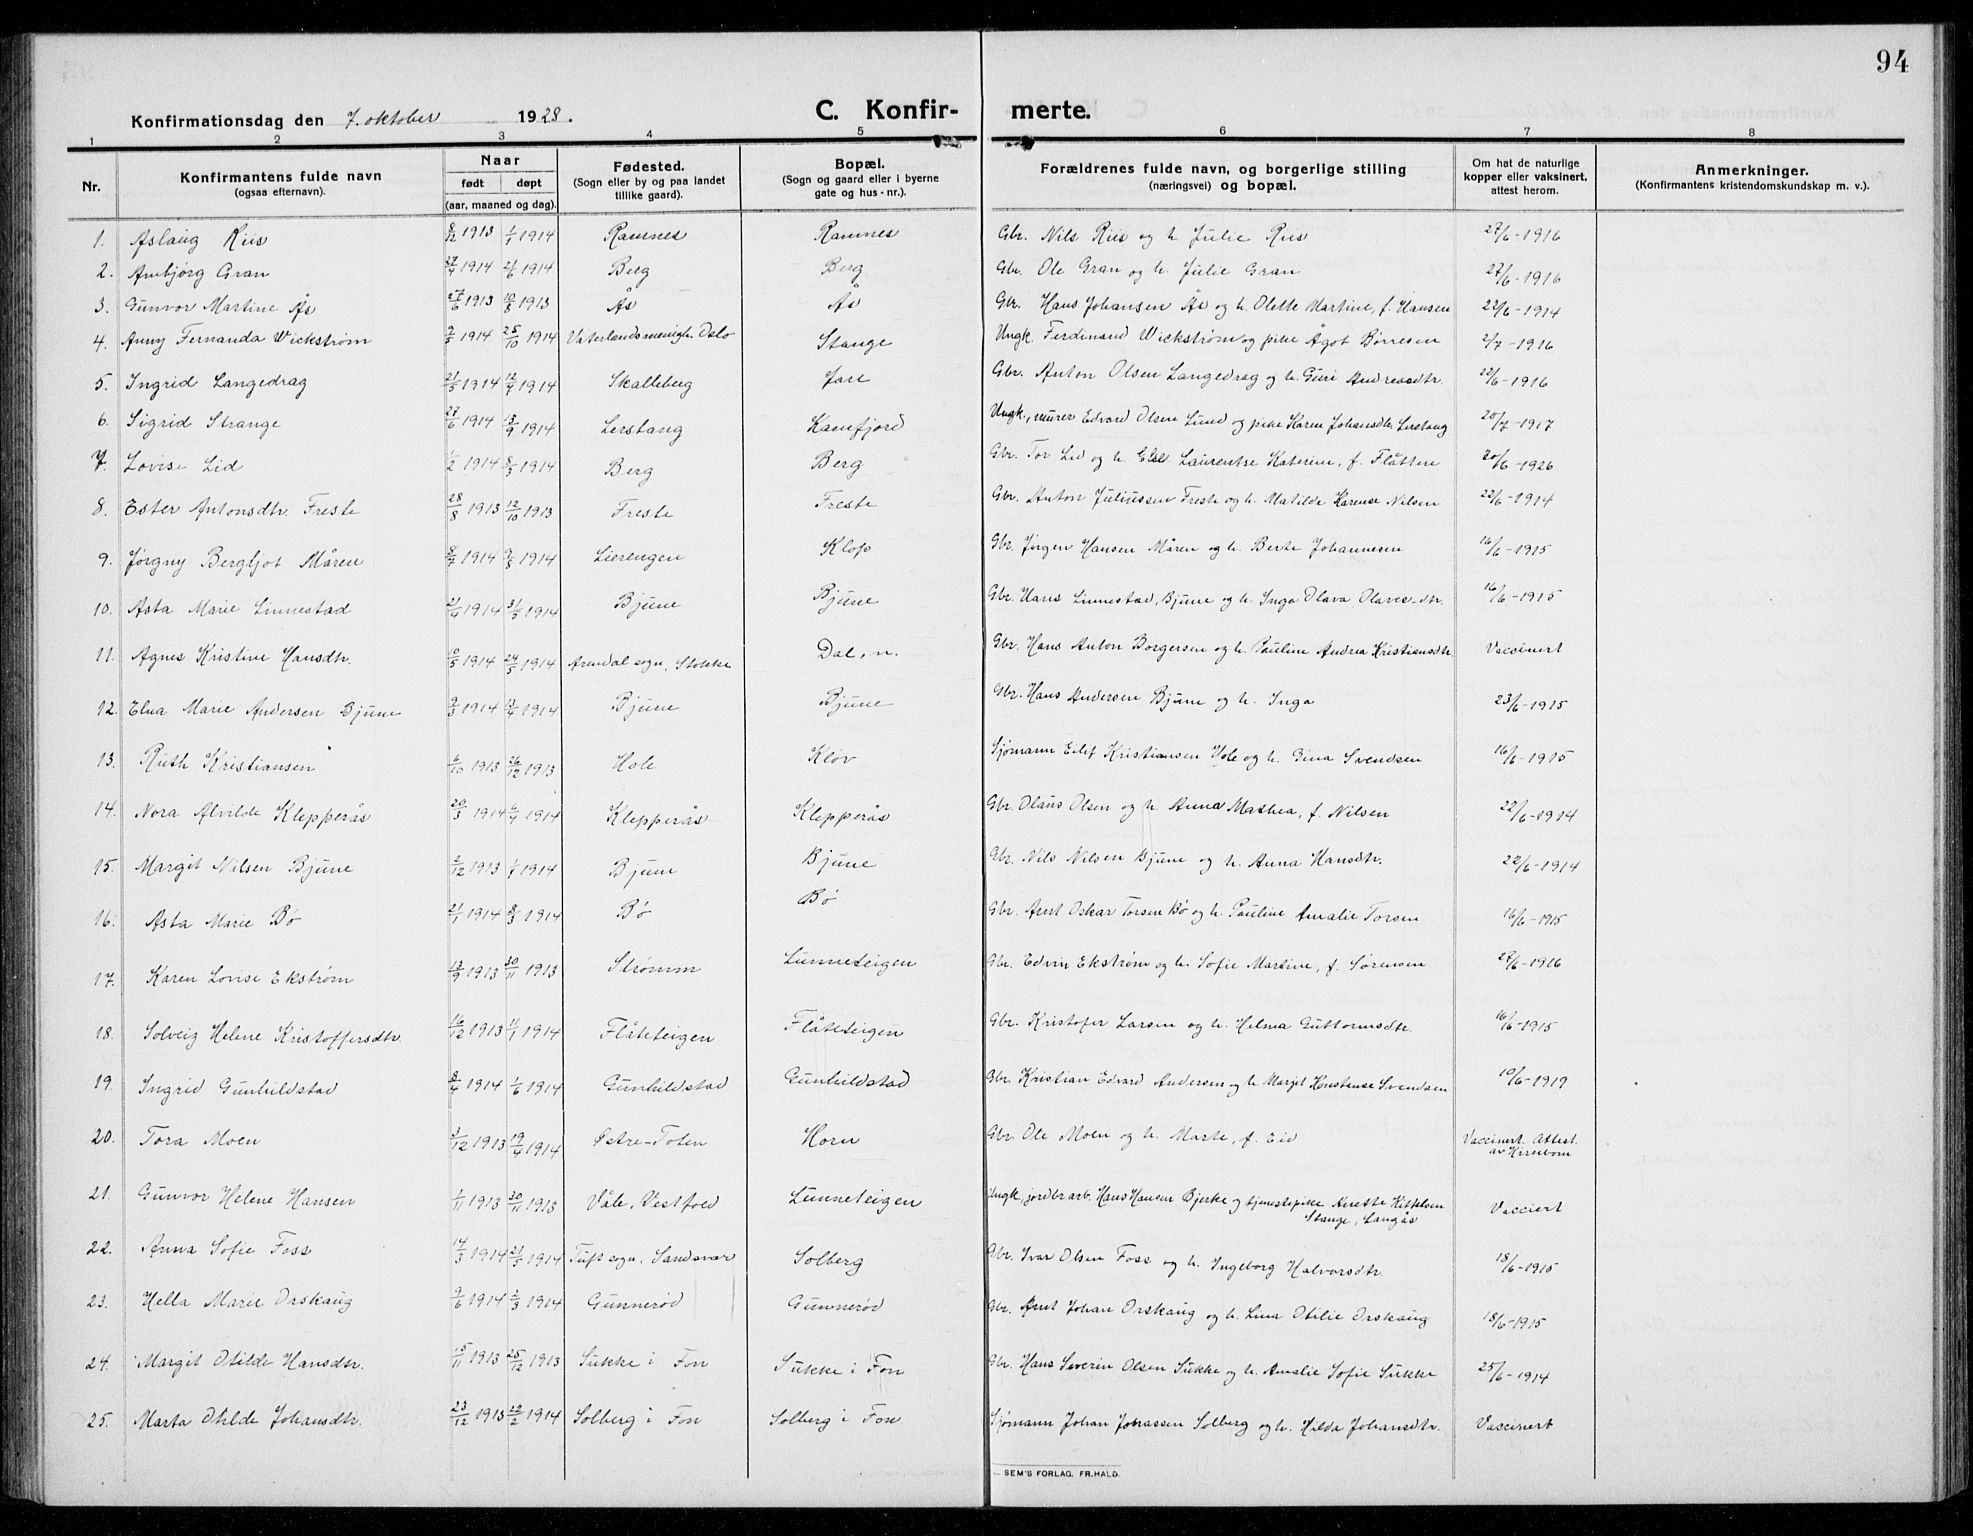 94
Konfirmationsdag den 7. oktober 1928.
C. Konfir- merte.
1 2 3 4 5 6 7 8
Nr.
Konfirmantens fulde navn
(ogsaa efternavn).
Naar
født døpt
(aar, maaned og dag).
Fødested.
(Sogn eller by og paa landet
tillike gaard).
Bopæl.
(Sogn og gaard eller i byerne
gate og hus-nr.).
Forældrenes fulde navn, og borgerlige stilling
(næringsvei) og bopæl.
Om hat de naturlige
kopper eller vaksinert,
attest herom.
Anmerkninger.
(Konfirmantens kristendomskundskap m. v.).
1. Aslaug Riis 8/12 1913 1/1 1914 Ramnes Ramnes Gbr. Nils Riis og h. Julie Riis 27/6-1916
2. Ambjørg Gran 27/4 1914 21/6 1914 Berg Berg Gbr. Ole Gran og h. Julie Gran 27/6-1916
3. Gunvor Martine Ås 27/6 1913 10/8 1913 Ås Ås Gbr. Hans Johansen Ås og h. Olette Martine, f. Hansen 22/6-1914
4. Anny Fernanda Wickstrøm 9/5 1914 25/10 1914 Vaterlandsmenigh. Oslo Stange Ungk. Ferdinand Wickstrøm og pike Ågot Børresen 2/7-1916
5. Ingrid Langedrag 21/5 1914 12/7 1914 Skalleberg Jare Gbr. Anton Olsen Langedrag og h. Guri Andreasdtr. 22/6-1916
6. Sigrid Strange 27/6 1914 13/9 1914 Lerstang Kamfjord Ungk., murer Edvard Olsen Lund og pike Karen Johansdtr. Lerstang 20/7-1917
7. Lovise Lid 1/2 1914 8/3 1914 Berg Berg Gbr. Tor Lid og h. Else Laurentse Katerine, f. Flåttere 20/6-1926
8. Ester Antonsdtr. Freste 28/8 1913 12/10 1913 Freste Freste Gbr. Anton Juliussen Freste og h. Matilde Karense Nilsen 22/6-1914
9. Jørgny Bergljot Måren 8/7 1914 9/8 1914 Lierengen Klop Gbr. Jørgen Hansen Måren og h. Berte Johannesen 16/6-1915
10. Asta Marie Linnestad 21/4 1914 31/5 1914 Bjune Bjune Gbr. Hans Linnestad, Bjune og h. Inga Olava Olavesdtr. 16/6-1915
11. Agnes Kristine Hansdtr. 10/5 1914 24/5 1914 Arendal sogn, Stokke Dal, n. Gbr. Hans Anton Borgersen og h. Pauline Andrea Kristiansdtr. Vaccinert
12. Elna Marie Andersen Bjune 9/3 1914 13/4 1914 Bjune Bjune Gbr. Hans Andersen Bjune og h. Inga 23/6-1915
13. Ruth Kristiansen 6/10 1913 26/12 1913 Hole Kløv Sjømann Eilef Kristiansen Hole og h. Gina Svendsen 16/6-1915
14. Nora Alvilde Klepperås 20/3 1914 6/4 1914 Klepperås Klepperås Gbr. Olaus Olsen og h. Anna Mathea, f. Nilsen 22/6-1914
15. Margit Nilsen Bjune 2/12 1913 1/7 1914 Bjune Bjune Gbr. Nils Nilsen Bjune og h. Anna Hansdtr. 22/6-1914
16. Asta Marie Bø 21/1 1914 8/3 1914 Bø Bø Gbr. Arnt Oskar Torsen Bø og h. Pauline Amalie Torsen 16/6-1915
17. Karen Lovise Ekstrøm 13/9 1913 30/11 1913 Strømm Lunneteigen Gbr. Edvin Ekstrøm og h. Sofie Martine, f. Sørensen 27/6-1916
18. Solveig Helene Kristoffersdtr. 16/12 1913 11/1 1914 Flåteteigen Flåteteigen Gbr. Kristofer Larsen og h. Helma Guttormsdtr. 16/6-1915
19. Ingrid Gunhildstad 8/4 1914 1/6 1914 Gunhildstad Gunhildstad Gbr. Kristian Edvard Andersen og h. Margit Konstanse Svendsen 19/6-1919
20. Tora Moen 3/12 1913 19/4 1914 Østre-Toten Horn Gbr. Ole Moen og h. Marte, f. Eid Vaccinert. Attest.
av Kirsebom
21. Gunvor Helene Hansen 1/11 1913 30/11 1913 Våle, Vestfold Lunneteigen Ungk., jordbr.arb. Hans Hansen Bjerke og tjenestepike Anette Kittelsen
Stange, Langås Vacciert
22. Anna Sofie Foss 14/3 1914 21/5 1914 Tuft sogn, Sandsvær Solberg Gbr. Ivar Olsen Foss og h. Ingeborg Halvorsdtr. 18/6-1915
23. Hella Marie Orskaug 9/6 1914 2/3 1914 Gunnerød Gunnerød Gbr. Arnt Johan Orskaug og h. Lina Otilie Orskaug 18/6-1915
24. Margit Otilde Hansdtr. 15/11 1913 25/12 1913 Sukke i Fon Sukke i Fon Gbr. Hans Severin Olsen Sukke og h. Amalie Sofie Sukke 25/6-1914
25. Marta Otilde Johansdtr. 23/12 1913 22/2 1914 Solberg i Fon Solberg i Fon Sjømann Johan Johnassen Solberg og h. Hilda Johansdtr. Vaccinert
SEM'S FORLAG, FR.HALD.